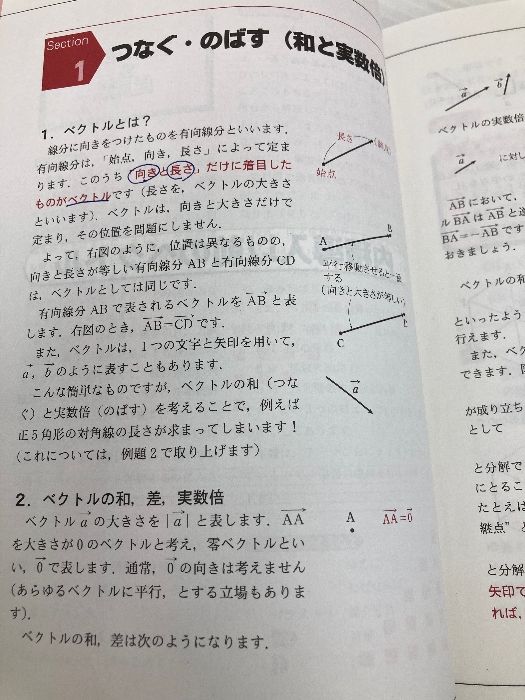 Section
1
つなぐ・のばす（和と実数倍）
1．ベクトルとは？
線分に向きをつけたものを有向線分といいます．
有向線分は，「始点，向き，長さ」によって定ま
ります．このうち「向きと長さ」だけに着目した
ものがベクトルです（長さを，ベクトルの大きさ
といいます）．ベクトルは，向きと大きさだけで
定まり，その位置を問題にしません．
よって，右図のように，位置は異なるものの，
向きと長さが等しい有向線分 AB と有向線分 CD
は，ベクトルとしては同じです．
有向線分 AB で表されるベクトルを AB と表
します．右図のとき，AB=CD です．
また，ベクトルは，1つの文字と矢印を用いて，
a，b のように表すこともあります．
こんな簡単なものですが，ベクトルの和（つな
ぐ）と実数倍（のばす）を考えることで，例えば
正5角形の対角線の長さが求まってしまいます！
（これについては，例題2で取り上げます）
長さ
始点
A
B
平行移動させると一致
する
（向きと大きさが等しい）
C
a
2．ベクトルの和，差，実数倍
ベクトル a の大きさを |a| と表します．AA
を大きさが0のベクトルと考え，零ベクトルとい
い，0 で表します．通常，0 の向きは考えません
（あらゆるベクトルに平行，とする立場もありま
す）．
ベクトルの和，差は次のようになります．
A
AA=0
a
b
ベクトルの実数倍
a
に対し
AB において，
ル BA は AB と逆
BA=-AB です
おきましょう．
ベクトルの
といったよう
行えます．
また，ベク
できます．
が成り立ち
として
と分解で
にとるこ
たとえば
継点" と
と分解
矢印で
れば，